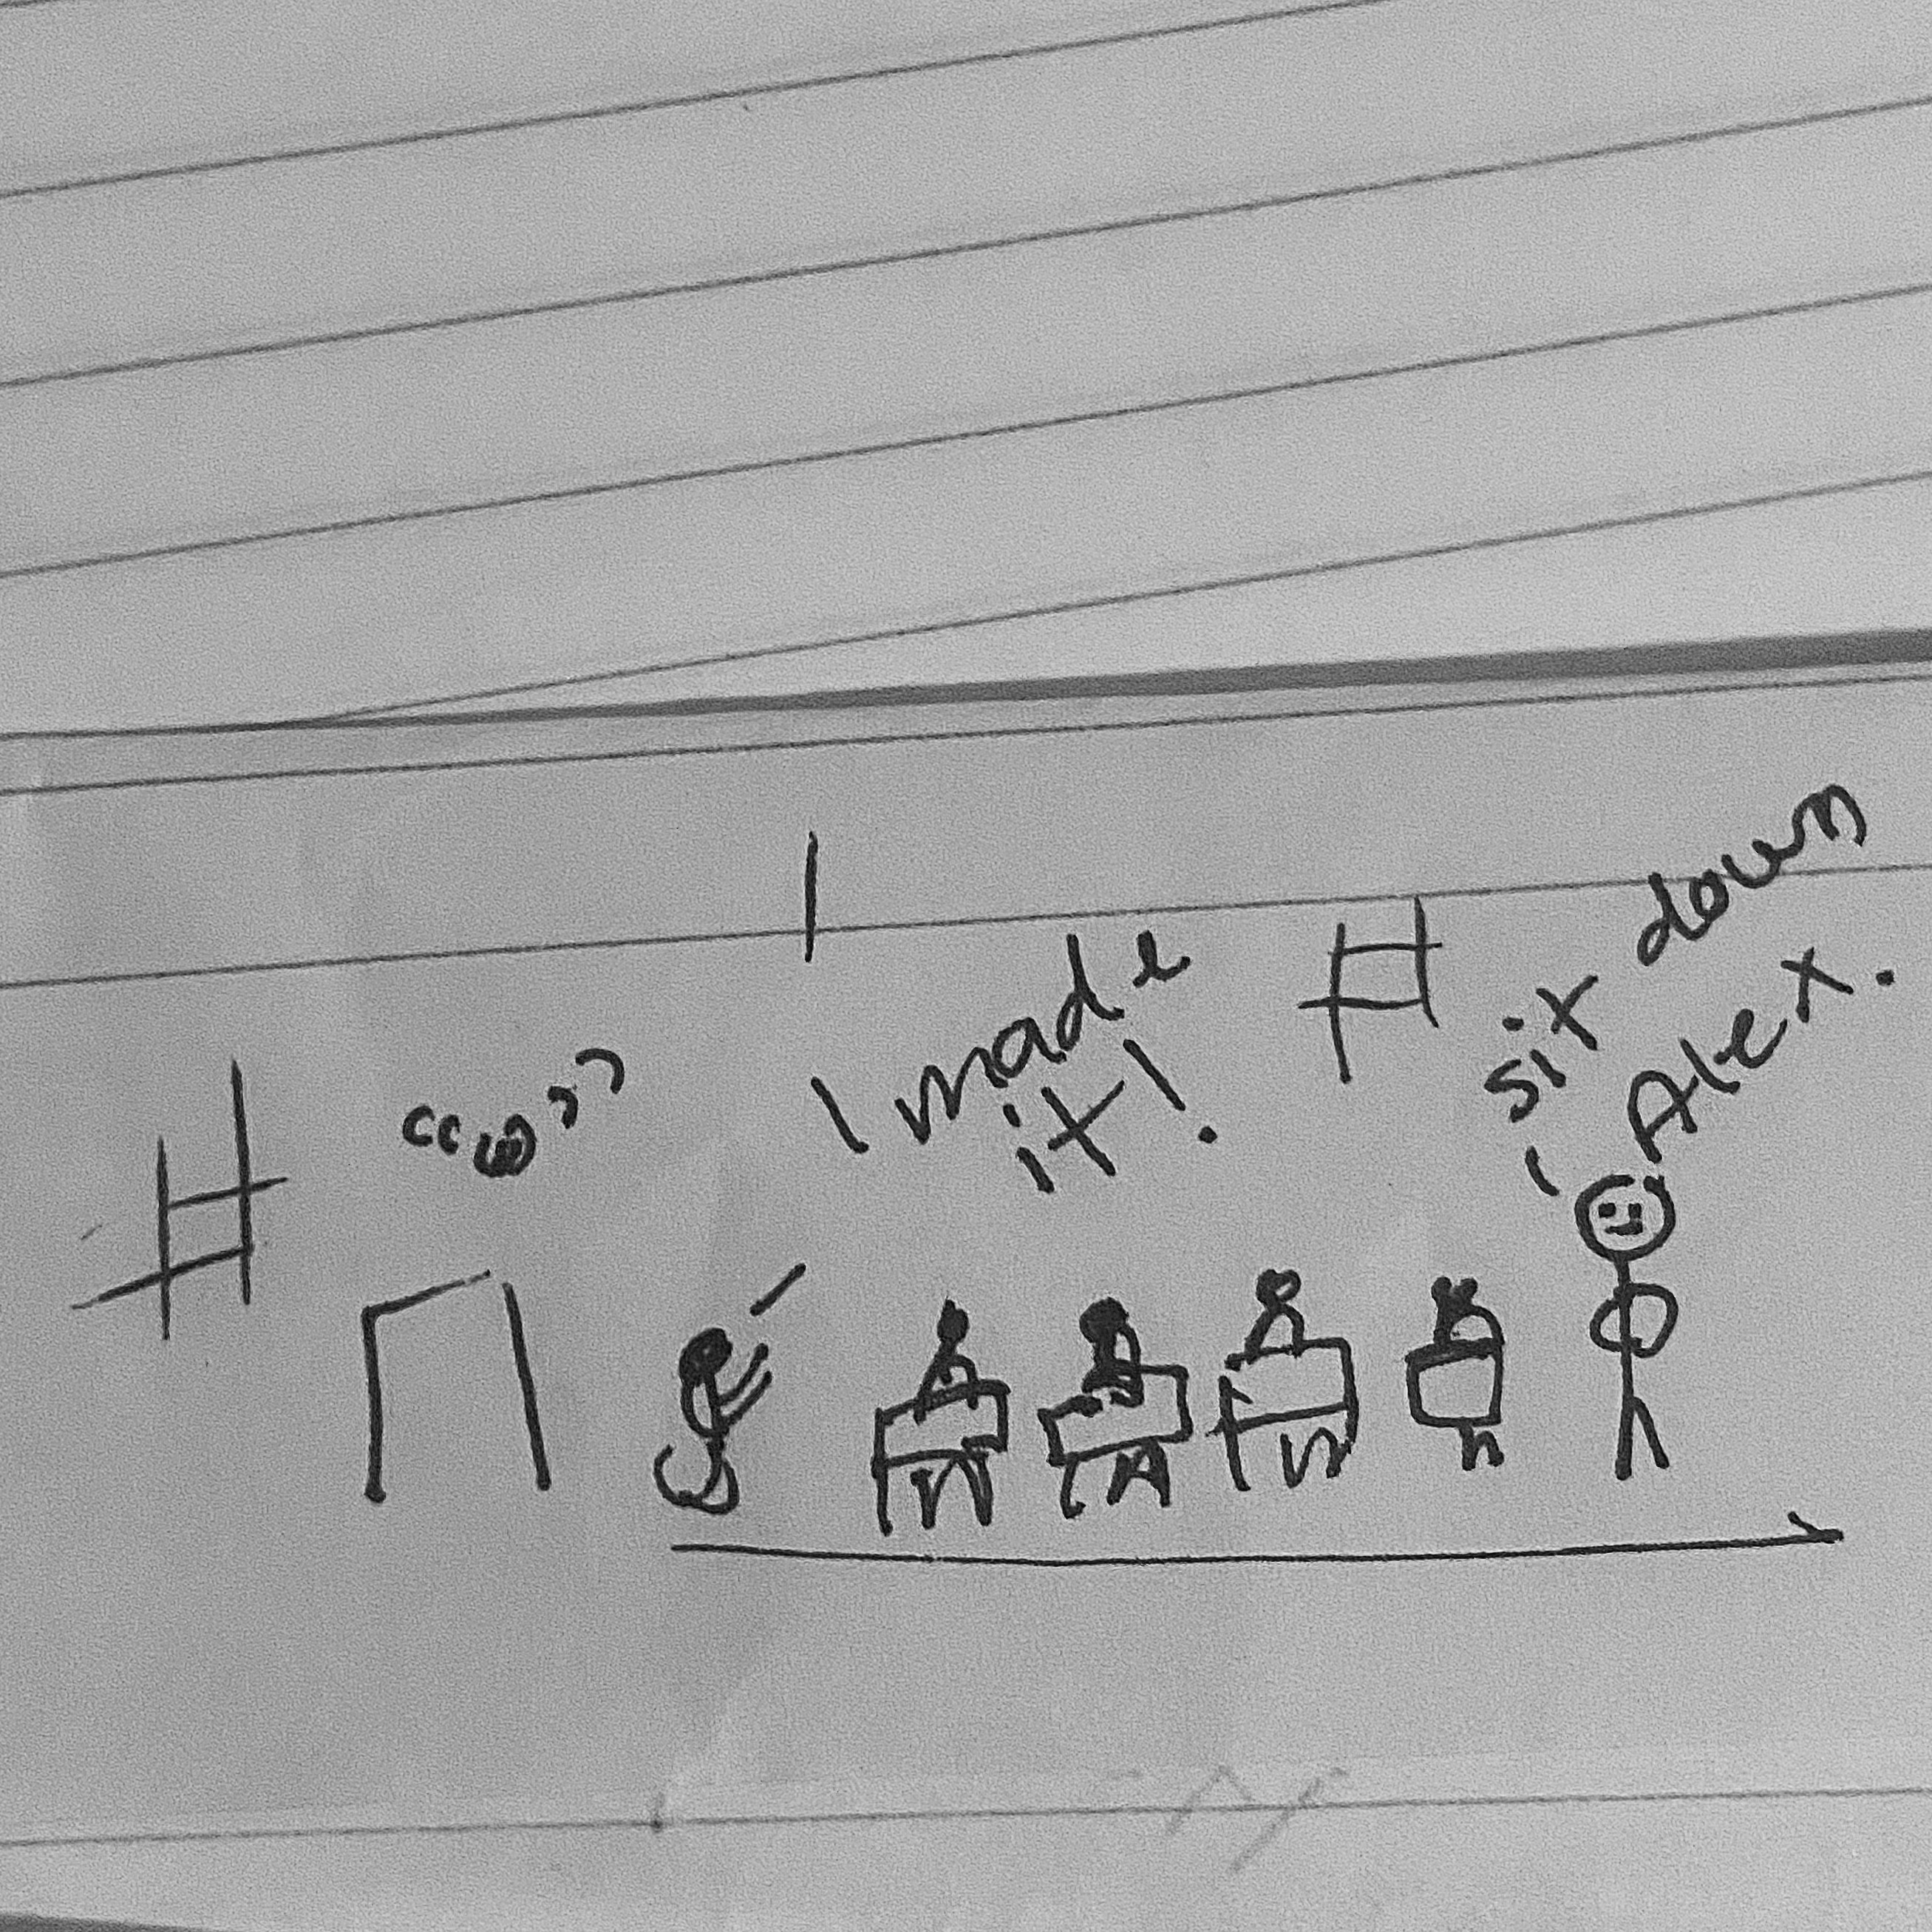 I made
it!
sit down
Alex.